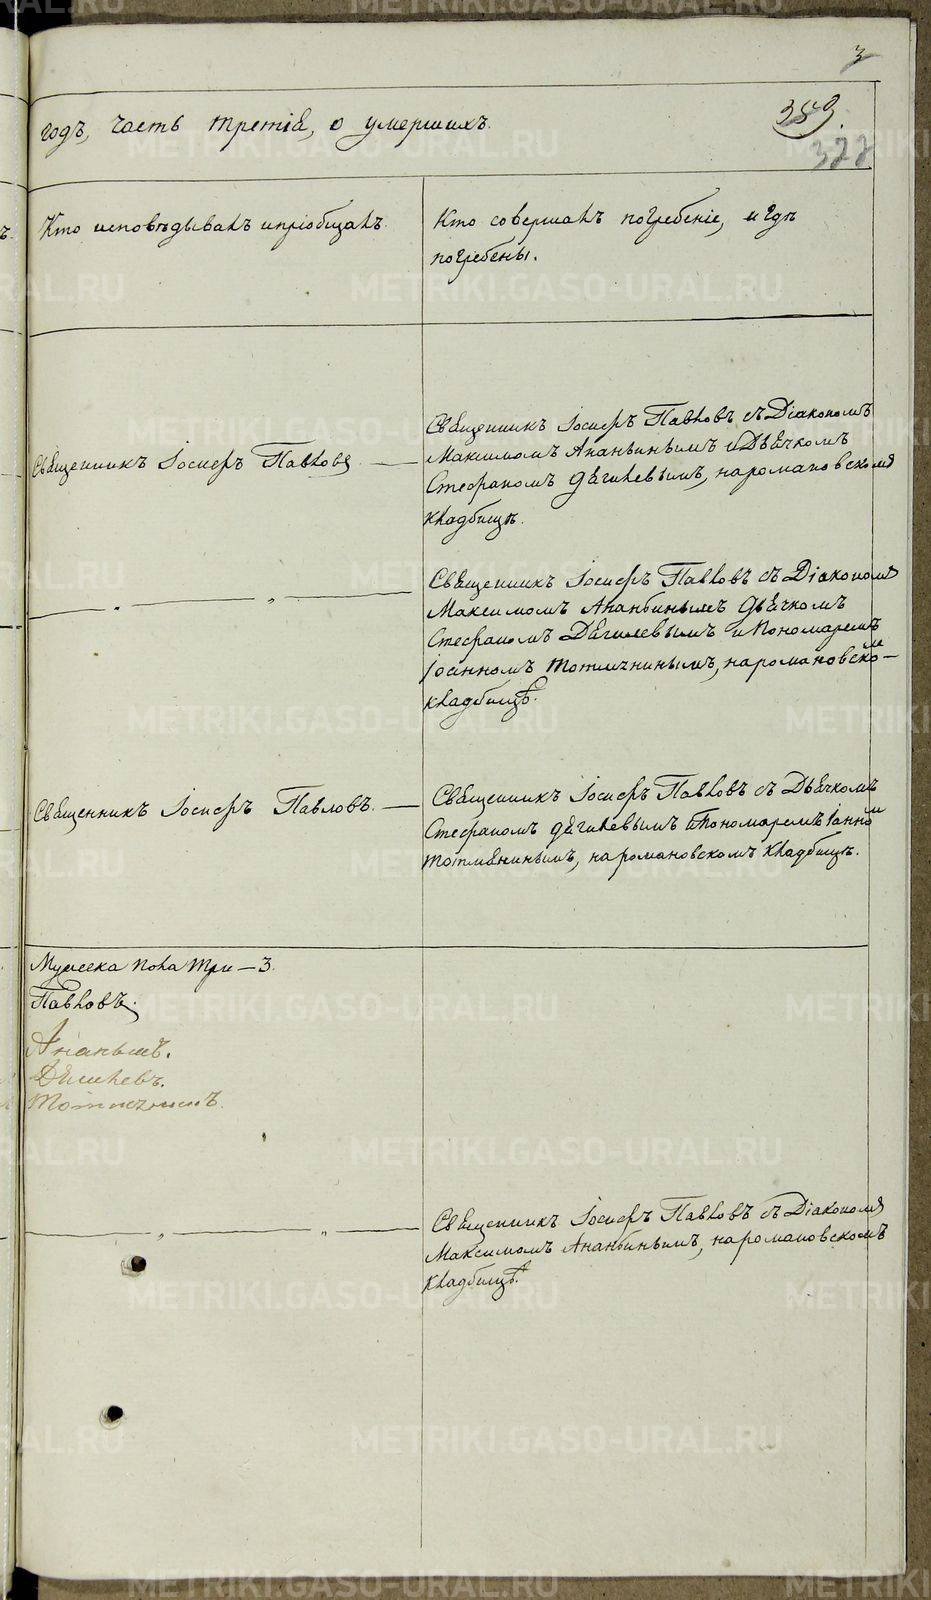 3
годъ, часть третіѧ, о умершихъ.
353.
377
Кто исповѣдывалъ и пріобщалъ.
Кто совершалъ погребеніе, и гдѣ
погребены.
Священникъ Іосифъ Павловъ
Священникъ Іосифъ Павловъ съ Діакономъ
Максимомъ Ананьинымъ и Дьячкомъ
Стефаномъ Дягилевымъ, на романовскомъ
кладбищѣ.
Священникъ Іосифъ Павловъ съ Діакономъ
Максимомъ Ананьинымъ Дьячкомъ
Стефаномъ Дягилевымъ и Пономаремъ
Іоанномъ Тотмянинымъ, на романовском
кладбищѣ.
Священникъ Іосифъ Павловъ.
Священникъ Іосифъ Павловъ съ Дьячкомъ
Стефаномъ Дягилевымъ и Пономаремъ Іанном
Тотмянинымъ, на романовскомъ кладбищѣ.
Мужеска пола три — 3.
Павловъ.
Ананьинъ.
Дягилевъ.
Тотмянинъ.
Священникъ Іосифъ Павловъ съ Діакономъ
Максимомъ Ананьинымъ, на романовскомъ
кладбищѣ.
METRIKI.GASO-URAL.RU